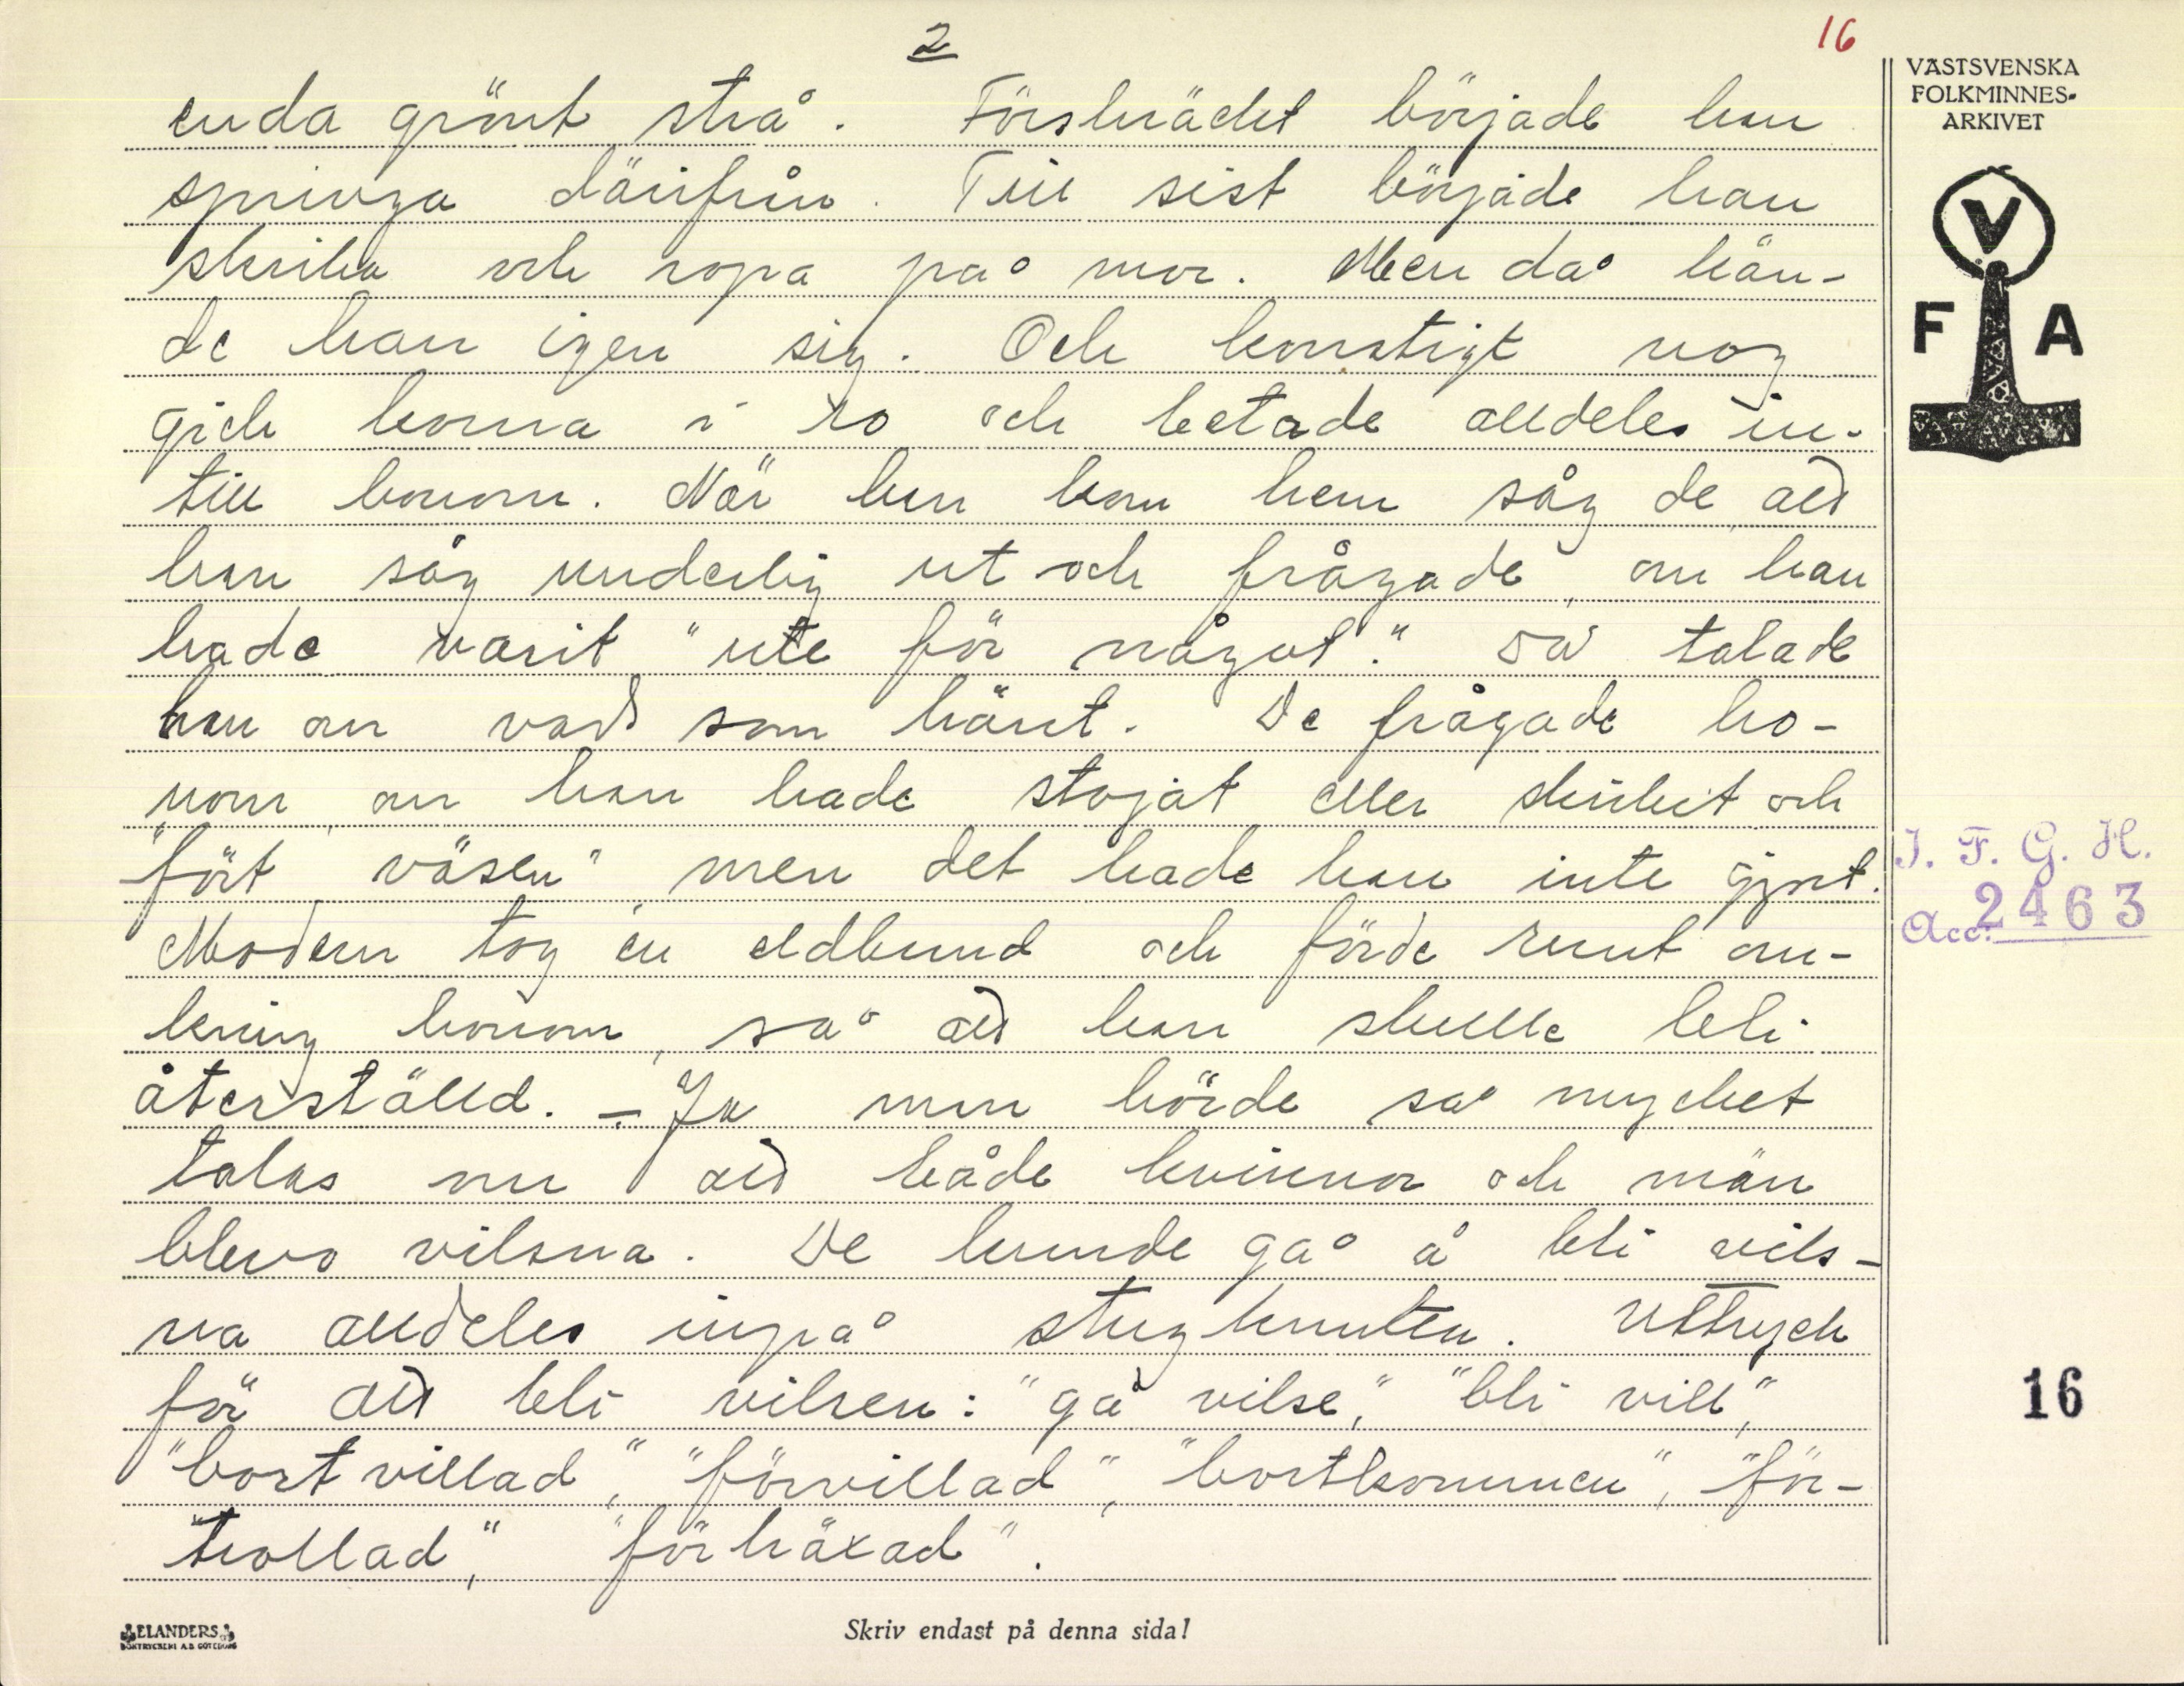 2
16
VÄSTSVENSKA
FOLKMINNES-
ARKIVET
V
F A
enda grönt strå. Förskräckt började han
springa därifrån. Till sist började han
skrika och ropa på mor. Men då kän-
de han igen sig. Och konstigt nog
gick korna i ro och betade alldeles in-
till honom. När han kom hem såg de att
han såg underlig ut och frågade, om han
hade varit "ute för något." Så talade
han om vad som hänt. De frågade ho-
nom, om han hade stojat eller skrikit och
"fört väsen", men det hade han inte gjort.
Modern tog en eldbrand och förde runt om-
kring honom, så att han skulle bli
återställd. – Ja man hörde så mycket
talas om att både kvinnor och män
blevo vilsna. De kunde gå å bli vils-
na alldeles inpå stugknuten. Uttryck
för att bli vilsen: "gå vilse", "bli vill",
"bortvillad", "förvillad", "bortkommen", "för-
trollad", "förhäxad".
I. F. G. H.
Acc: 2463
16
ELANDERS
BOKTRYCKERI A.B. GÖTEBORG
Skriv endast på denna sida!